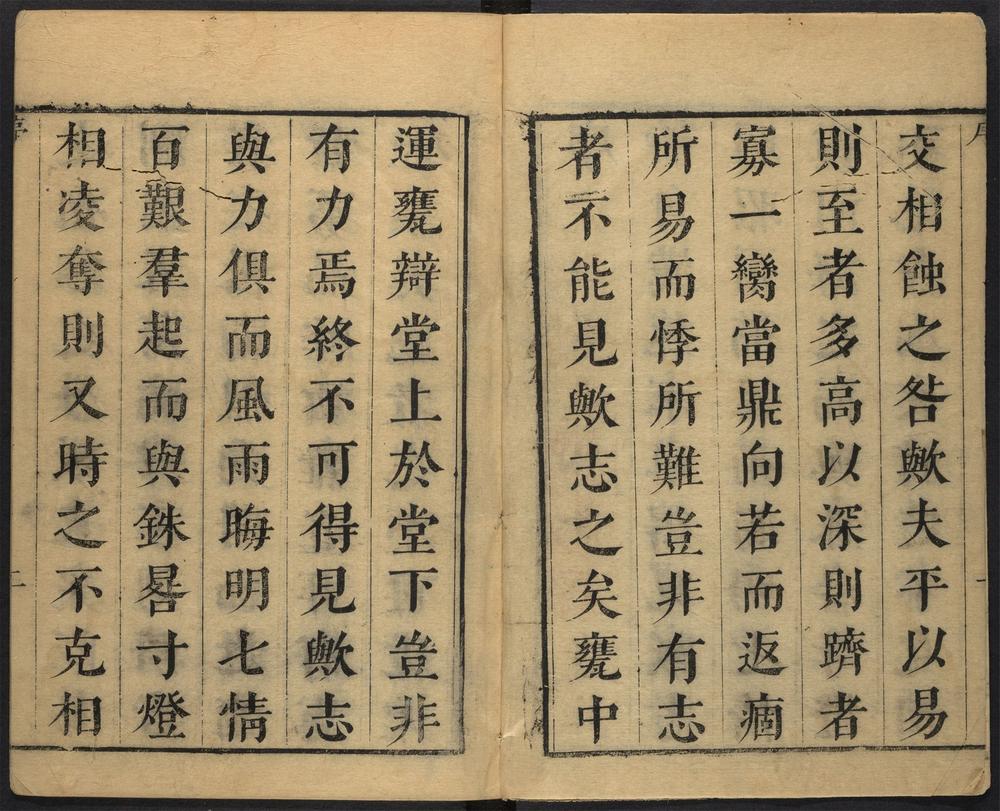 交相蝕之咎歟夫平以易
則至者多高以深則躋者
寡一臠當鼎向若而返痼
所易而悸所難豈非有志
者不能見歟志之矣甕中
運甕辯堂上於堂下豈非
有力焉終不可得見歟志
與力俱而風雨晦明七情
百艱羣起而與銖晷寸燈
相凌奪則又時之不克相